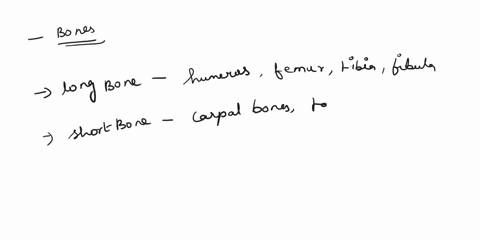 - Bones
→ long Bone - humerus, femur, tibia, fibula
→ short Bone - carpal bones,